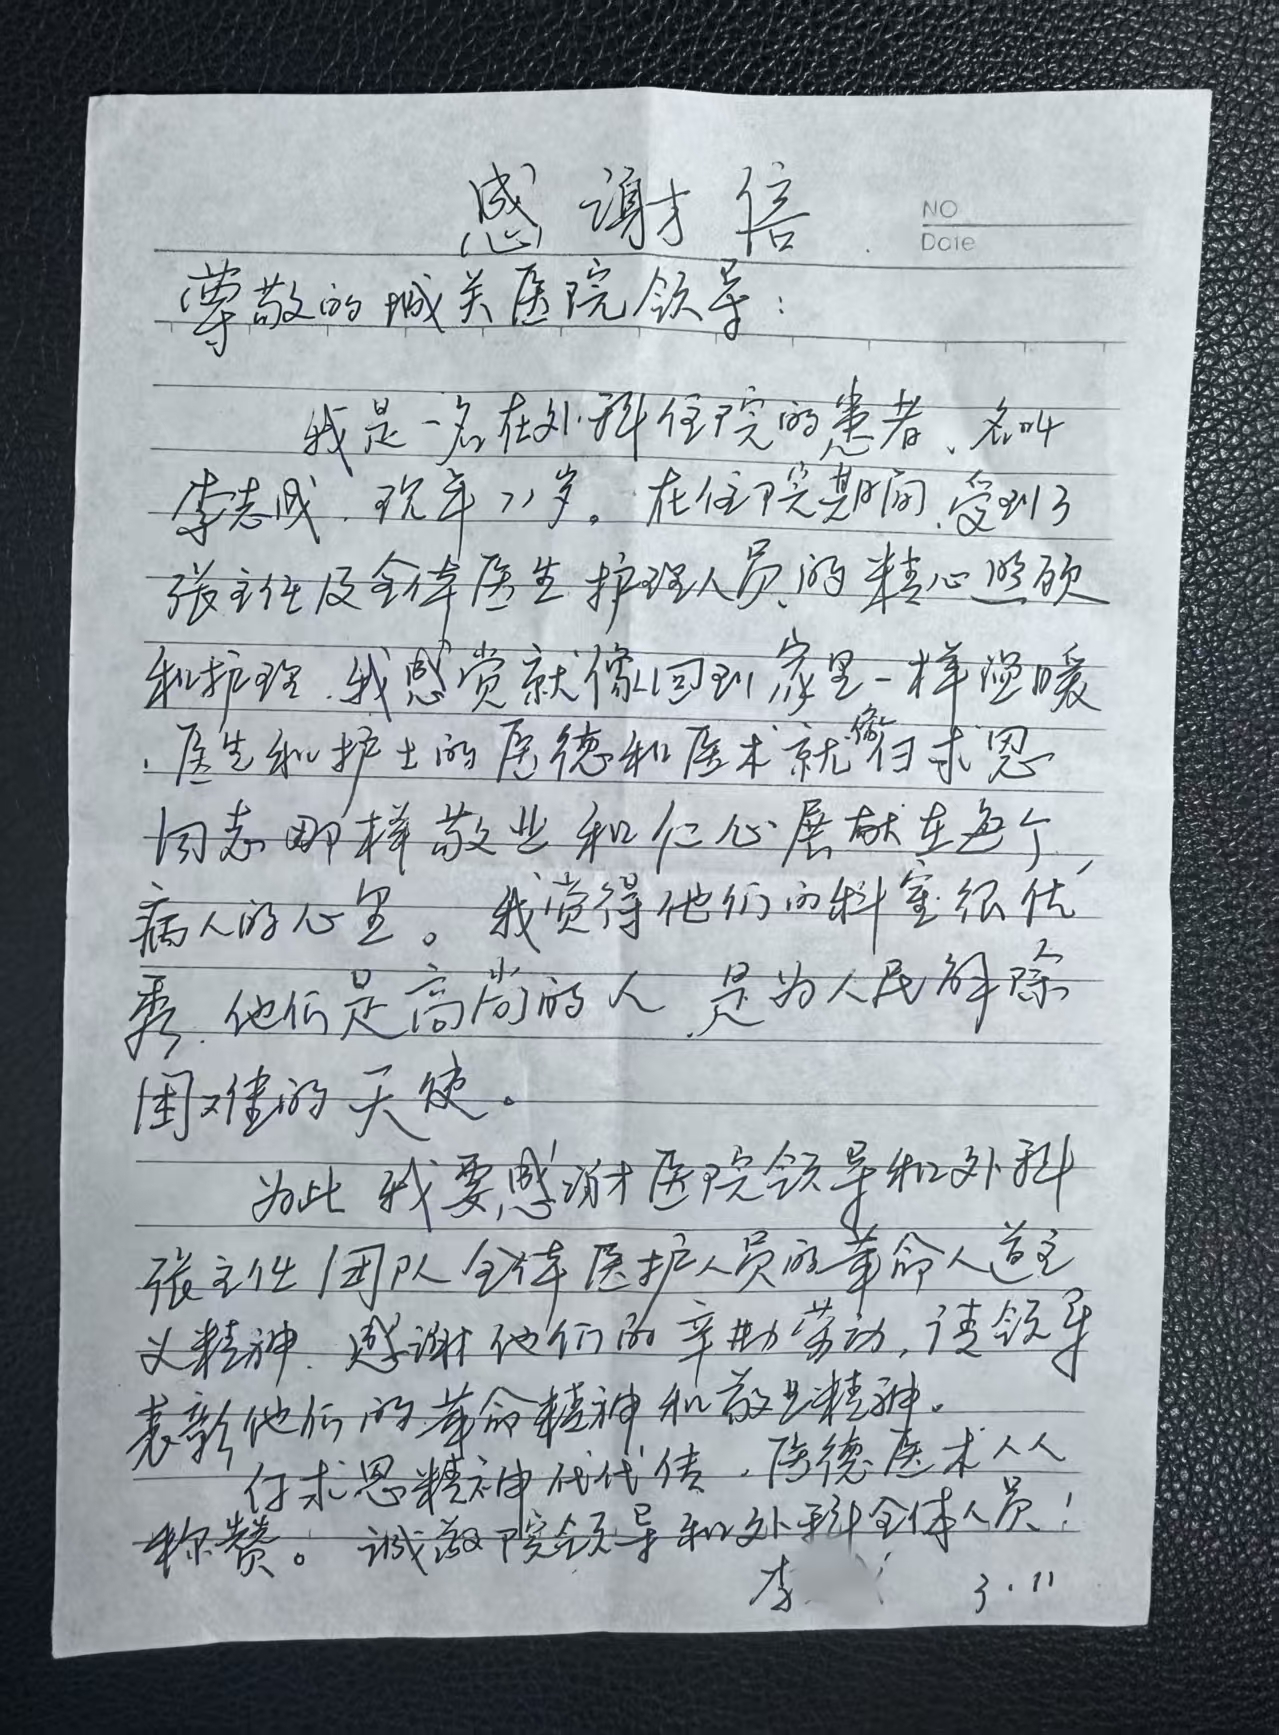 感谢信
NO
Date
尊敬的城关医院领导：
我是一名在外科住院的患者、名叫
李志成、现年71岁。在住院期间、受到了
张主任及全体医生护理人员的精心照顾
和护理、我感觉就像回到家里一样温暖
、医生和护士的医德和医术就像白求恩
同志那样敬业和仁心展献在每个
病人的心里。我觉得他们的科室很优
秀、他们是高尚的人、是为人民解除
困难的天使。
为此我要感谢医院领导和外科
张主任团队全体医护人员的革命人道主
义精神、感谢他们的辛勤劳动，请领导
表彰他们的革命精神和敬业精神。
白求恩精神代代传、医德医术人人
称赞。诚敬院领导和外科全体人员！
李
3.11